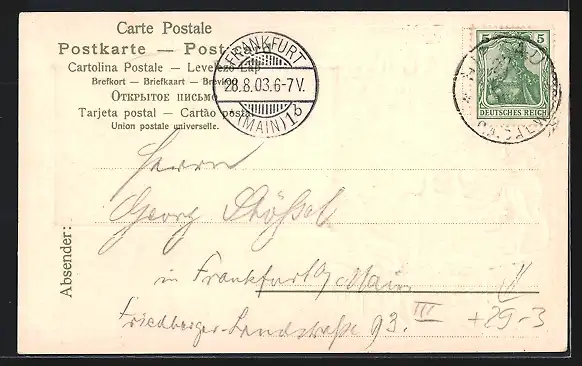 Carte Postale
Postkarte — Post
Cartolina Postale — Levelező-Lap
Brefkort — Briefkaart — Brevkort
ОТКРЫТОЕ ПИСЬМО
Tarjeta postal — Cartão postal
Union postale universelle.
FRANKFURT
28.8.03.6-7V.
(MAIN)
5 5
DEUTSCHES REICH
Herrn
Georg Stößel
in Frankfurt a/Main
Friedberger-Landstraße 93. III
+29-3
Absender: